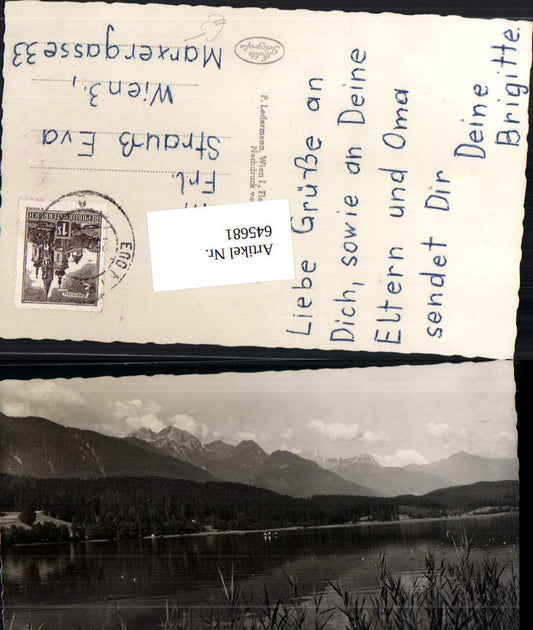 Liebe Grüße an
Dich, sowie an Deine
Eltern und Oma
sendet Dir Deine
Brigitte.
Echte
Fotografie
P. Ledermann, Wien I.,
Nachdruck
Frl.
Strauß Eva
Wien 3.,
Marxergasse 33
REPUBLIK ÖSTERREICH
Artikel Nr.
645681